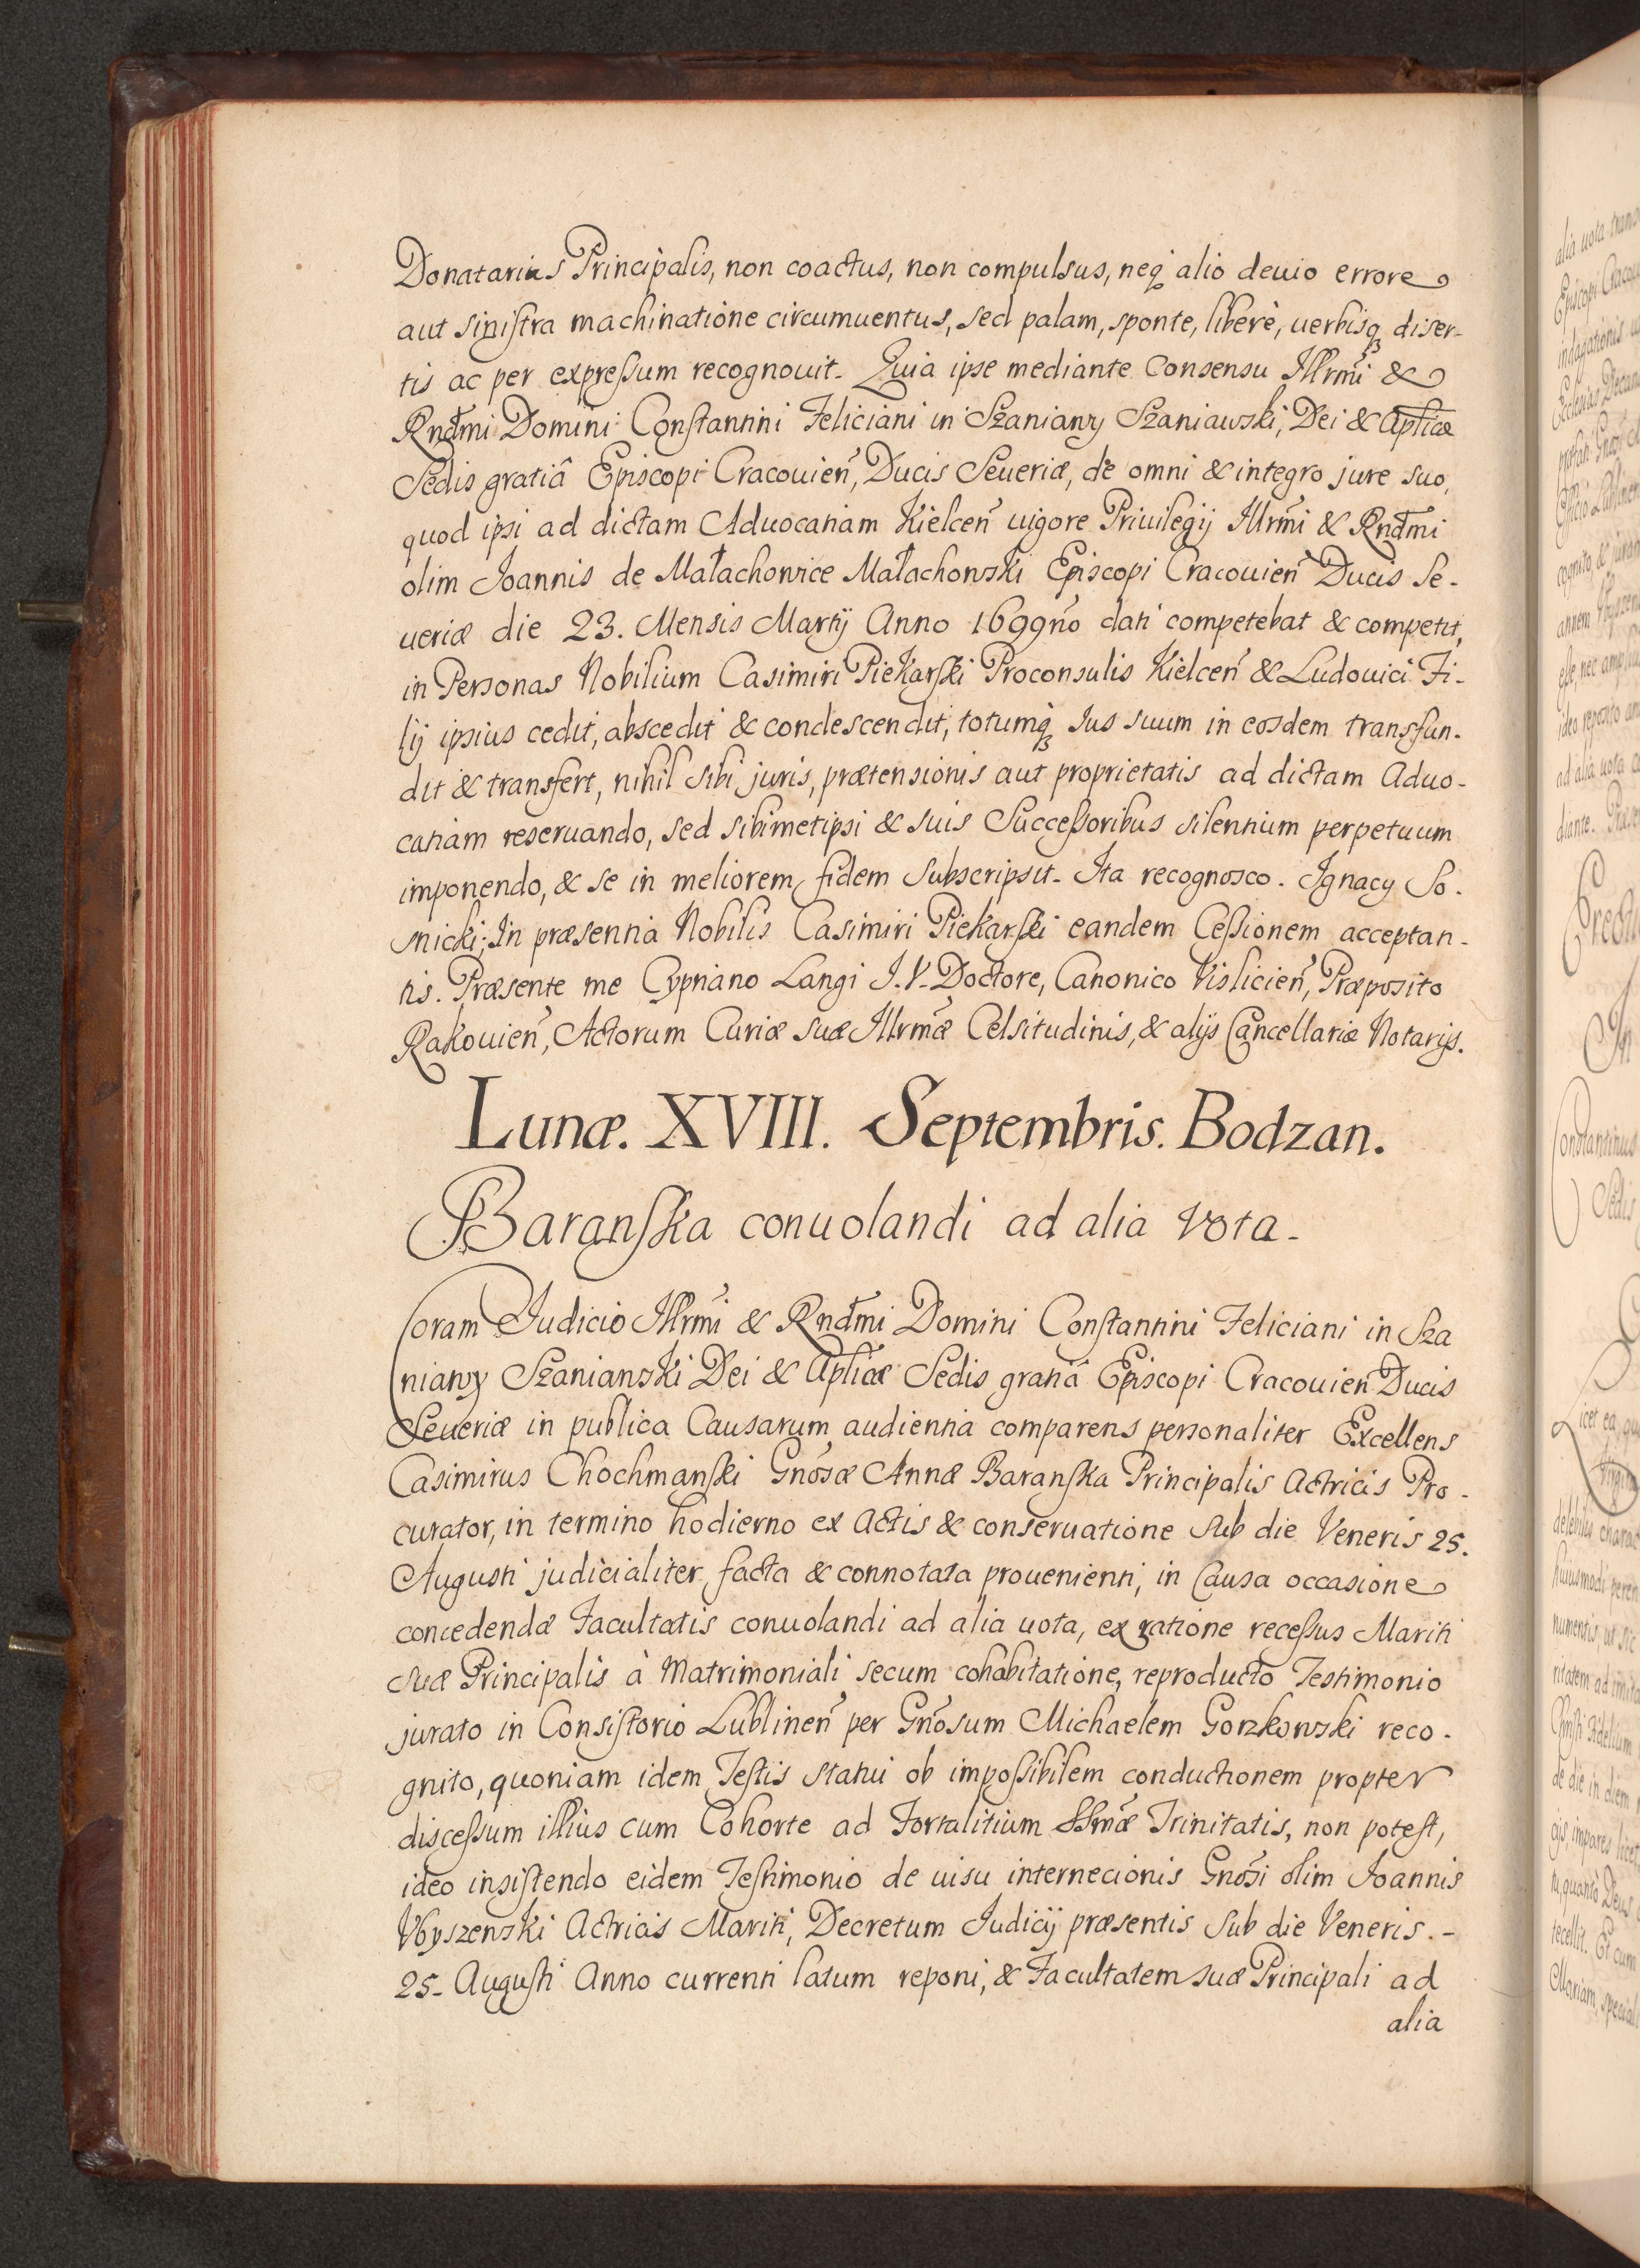 Donatarius Principalis, non coactus, non compulsus, neq₃ alio deuio errore
aut sinistra machinatione circumuentus, sed palam, sponte, liberè, uerbisq₃ diser-
tis ac per expressum recognouit. Quia ipse mediante Consensu Illrmi &
Rndmi Domini Constantini Feliciani in Szaniawy Szaniawski, Dei & Aplicæ
Sedis gratiâ Episcopi Cracouien, Ducis Seueriæ, de omni & integro jure suo,
quod ipsi ad dictam Aduocatiam Kielcen uigore Priuilegij Illrmi & Rndmi
olim Joannis de Małachowice Małachowski Episcopi Cracouien Ducis Se-
ueriæ die 23. Mensis Martij Anno 1699no dati competebat & competit,
in Personas Nobilium Casimiri Piekarski Proconsulis Kielcen & Ludouici Fi-
lij ipsius cedit, abscedit & condescendit, totumq₃ Jus suum in eosdem transfun-
dit & transfert, nihil sibi juris, prætensionis aut proprietatis ad dictam Aduo-
catiam reseruando, sed sibimetipsi & suis Successoribus silentium perpetuum
imponendo, & se in meliorem fidem subscripsit. Ita recognosco. Ignacy So-
snicki; In præsentia Nobilis Casimiri Piekarski eandem Cessionem acceptan-
tis. Præsente me Cypriano Langi J.V. Doctore, Canonico Vislicien, Præposito
Rakouien, Actorum Curiæ suæ Illrmæ Celsitudinis, & alijs Cancellariæ Notarijs.
Lunæ. XVIII. Septembris. Bodzan.
Baranska conuolandi ad alia vota.
Coram Judicio Illrmi & Rndmi Domini Constantini Feliciani in Sza
niawy Szaniawski Dei & Aplicæ Sedis gratiâ Episcopi Cracouien Ducis
Seueriæ in publica Causarum audientia comparens personaliter Excellens
Casimirus Chochmanski Gnosæ Annæ Baranska Principalis Actricis Pro-
curator, in termino hodierno ex Actis & conseruatione sub die Veneris 25.
Augusti judicialiter facta & connotata prouenienti, in Causa occasione
concedendæ Facultatis conuolandi ad alia uota, ex ratione recessus Mariti
suæ Principalis à Matrimoniali secum cohabitatione, reproducto Testimonio
jurato in Consistorio Lublinen per Gnosum Michaelem Gorzkowski reco-
gnito, quoniam idem Testis statui ob impossibilem conductionem propter
discessum illius cum Cohorte ad Fortalitium SSmæ Trinitatis, non potest,
ideo insistendo eidem Testimonio de uisu internecionis Gnosi olim Joannis
Vbyszewski Actricis Mariti, Decretum Judicij præsentis sub die Veneris. -
25. Augusti Anno currenti latum reponi, & Facultatem suæ Principali ad
alia